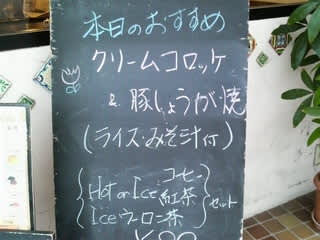 本日のおすすめ
クリームコロッケ
& 豚しょうが焼
(ライス・みそ汁付)
コーヒー
Hot or Ice 紅茶
Ice ウーロン茶
セット